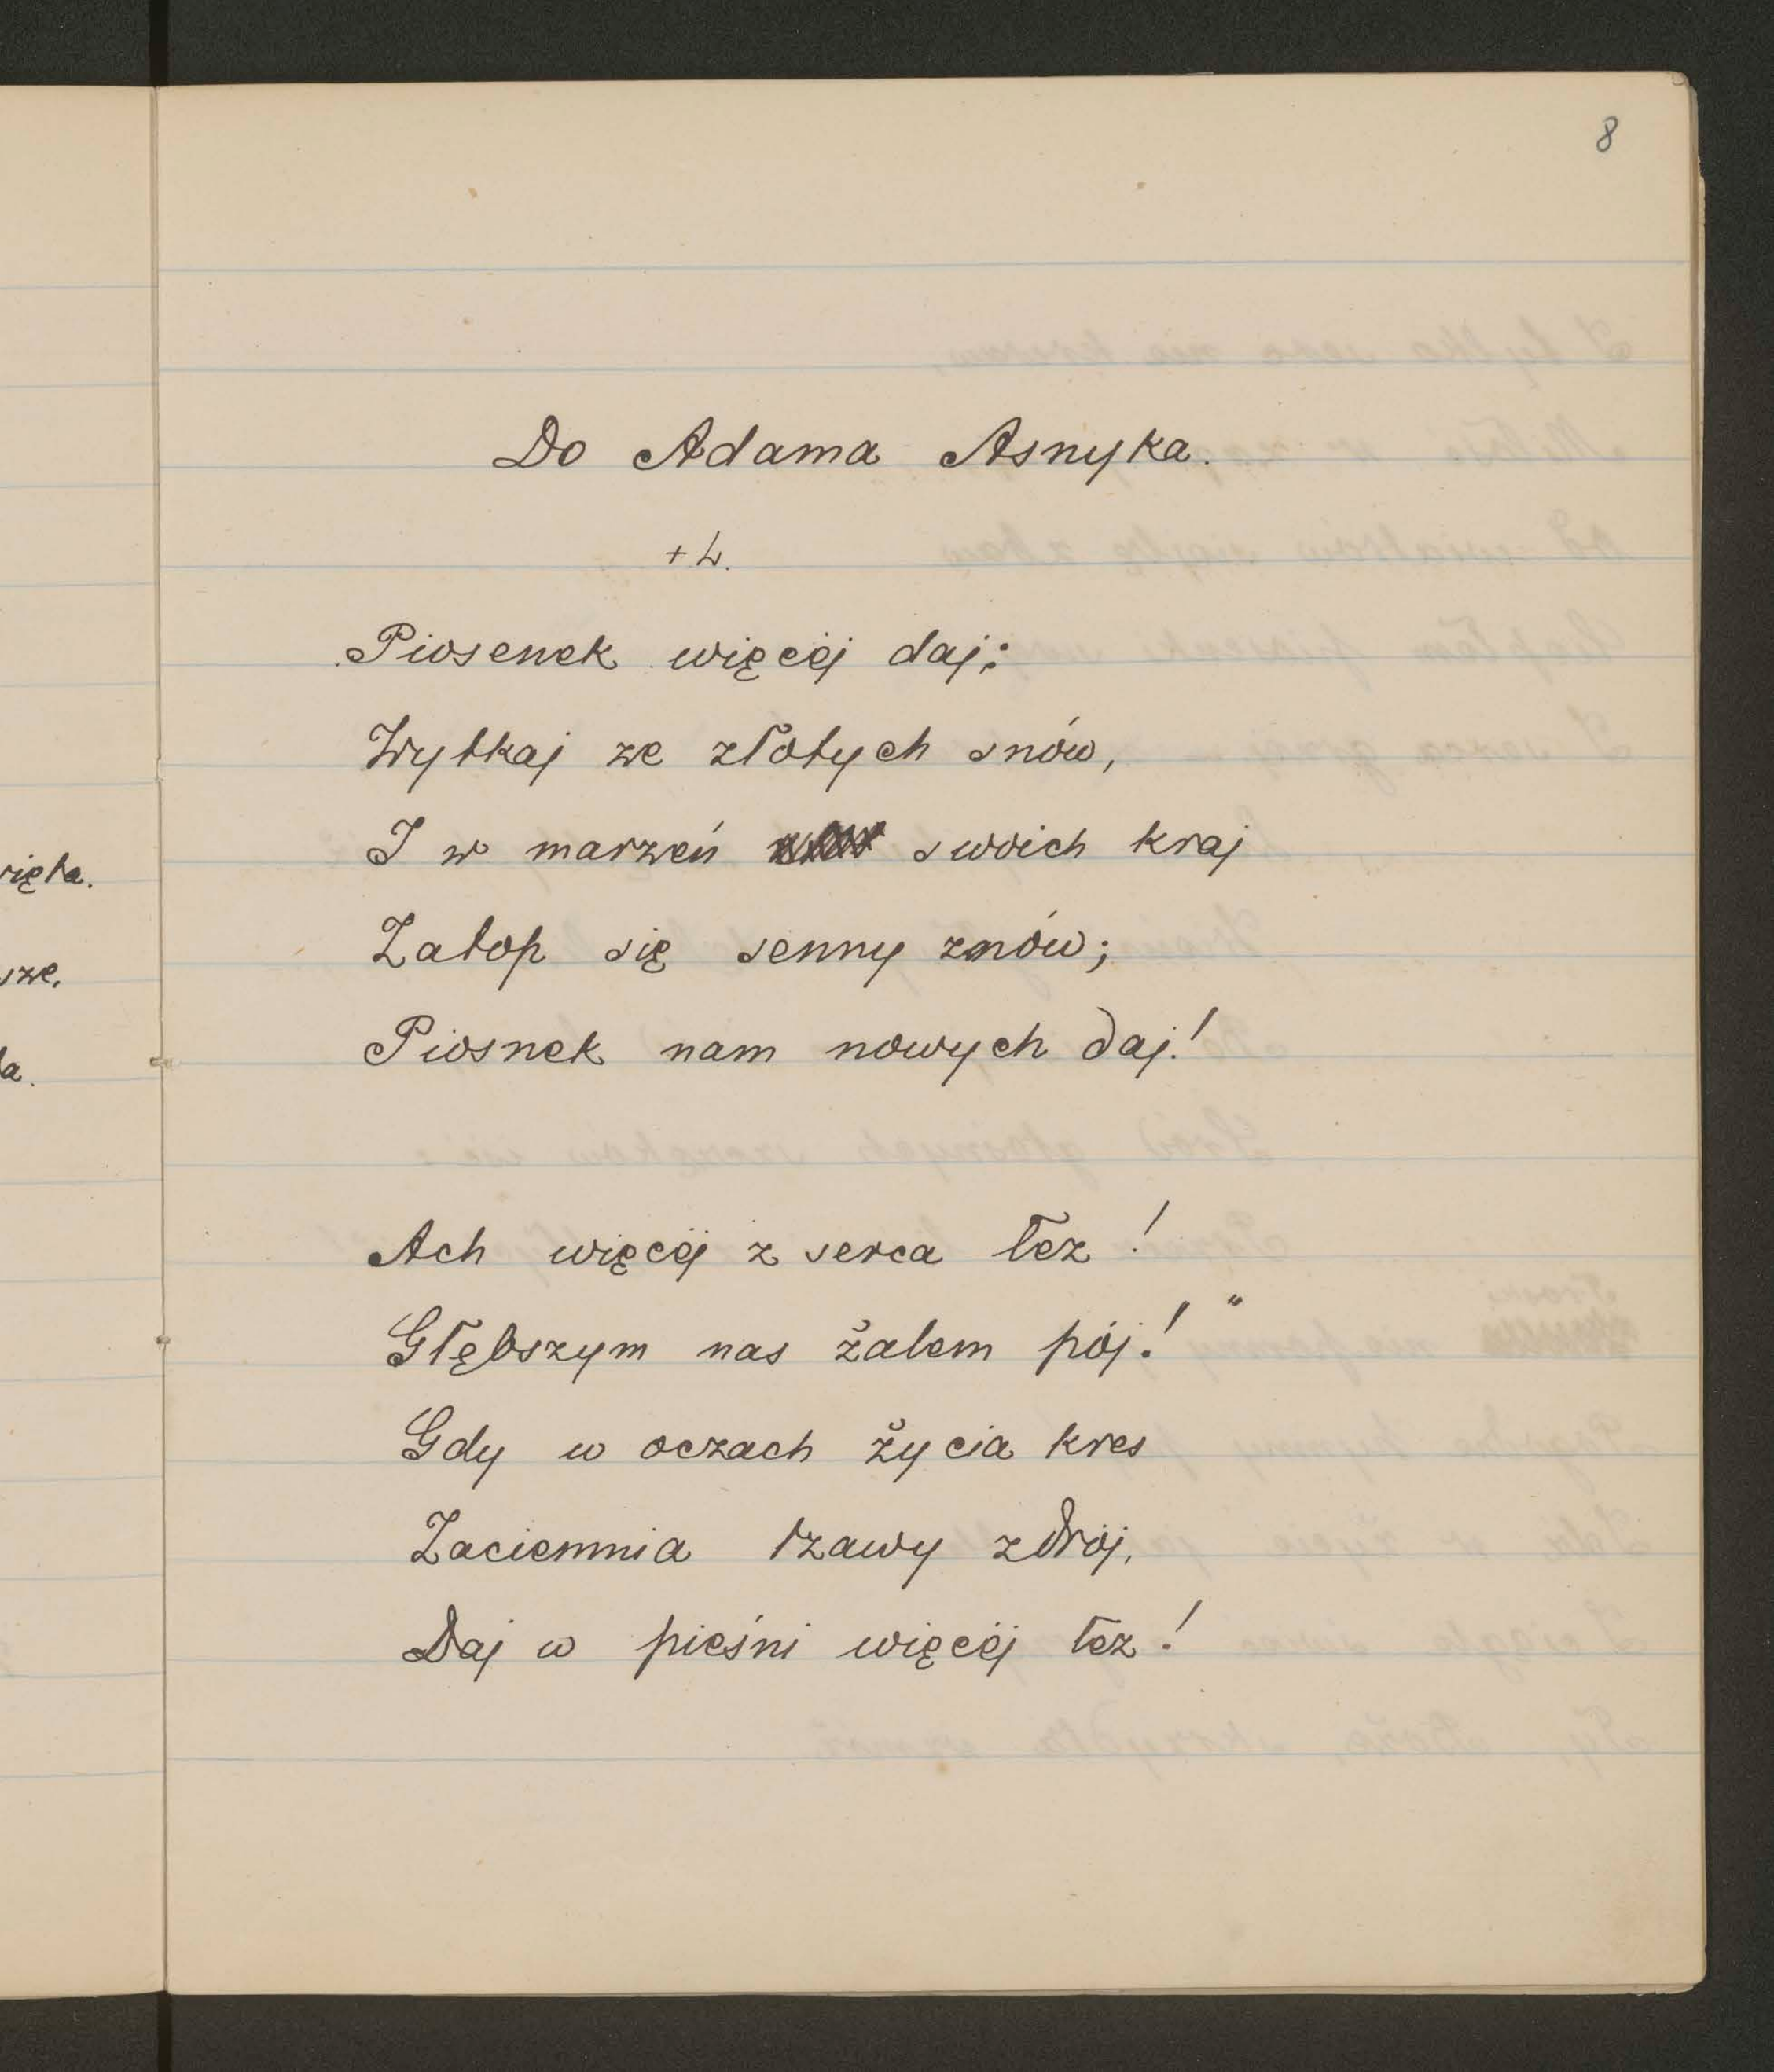 8
Do Adama Asnyka.
+ L.
Piosenek więcéj daj:
Wytkaj ze złotych snów,
I w marzeń swoich kraj
Zatop się senny znów;
Piosnek nam nowych daj!
Ach więcéj z serca łez!
Głębszym nas żalem pój!"
Gdy w oczach życia kres
Zaciemnia łzawy zdrój,
Daj w pieśni więcéj łez!